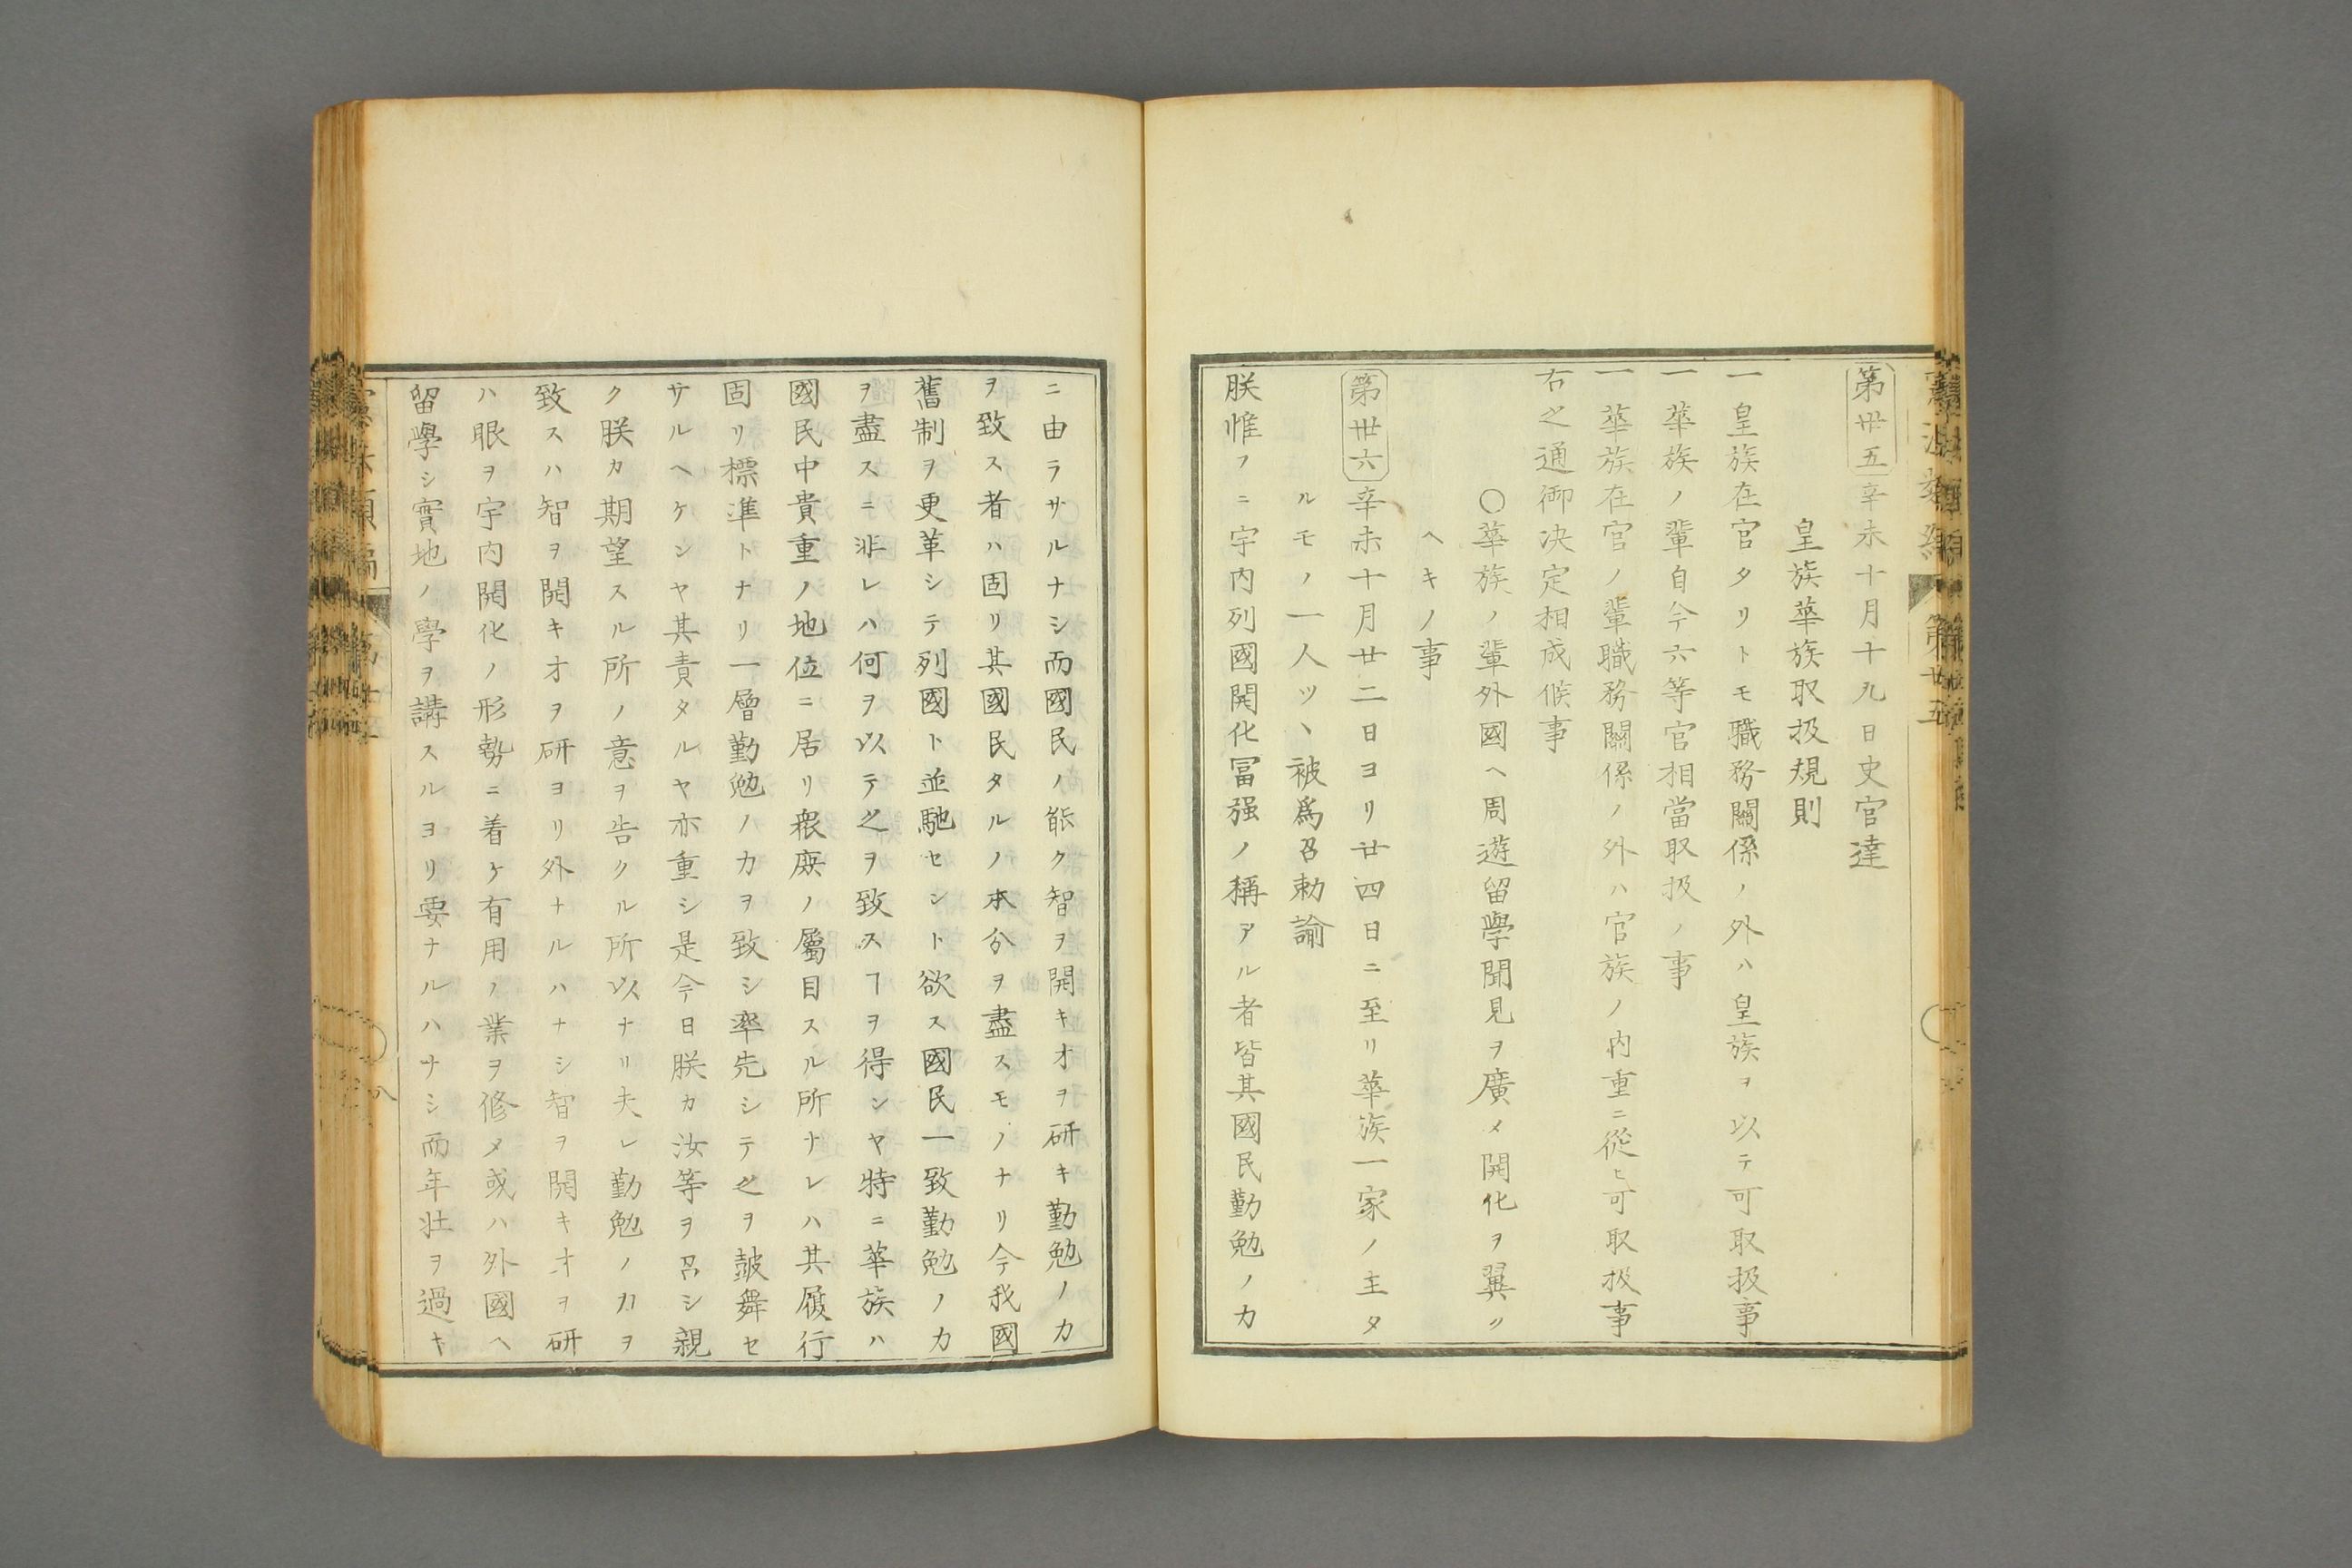 第卅五 辛未十月十九日史官達
皇族華族取扱規則
一皇族在官タリトモ職務關係ノ外ハ皇族ヲ以テ可取扱事
一華族ノ輩自今六等官相當取扱ノ事
一華族在官ノ輩職務關係ノ外ハ官族ノ内重ニ從ヒ可取扱事
右之通御决定相成候事
〇華族ノ輩外國ヘ周遊留學聞見ヲ廣メ開化ヲ翼ツ
ヘキノ事
第卅六 辛未十月廿二日ヨリ廿四日ニ至リ華族一家ノ主タ
ルモノ一人ツヽ被爲召勅諭
朕惟フニ宇内列國開化冨强ノ稱アル者皆其國民勤勉ノ力
ニ由ラサルナシ而國民ノ能ク智ヲ開キオヲ研キ勤勉ノ力
ヲ致ス者ハ固リ其國民タルノ本分ヲ盡スモノナリ今我國
舊制ヲ更革シテ列國ト並馳セント欲ス國民一致勤勉ノ力
ヲ盡スニ非レハ何ヲ以テ之ヲ致スヿヲ得ンヤ特ニ華族ハ
國民中貴重ノ地位ニ居リ衆庶ノ屬目スル所ナレハ其履行
固リ標準トナリ一層勤勉ノ力ヲ致シ率先シテ之ヲ皷舞セ
サルヘケンヤ其責タルヤ亦重シ是今日朕カ汝等ヲ召シ親
ク朕カ期望スル所ノ意ヲ告クル所以ナリ夫レ勤勉ノ力ヲ
致スハ智ヲ開キオヲ研ヨリ外ナルハナシ智ヲ開キオヲ研
ハ眼ヲ宇内開化ノ形勢ニ着ケ有用ノ業ヲ修メ或ハ外國ヘ
留學シ實地ノ學ヲ講スルヨリ要ナルハナシ而年壮ヲ過キ
八